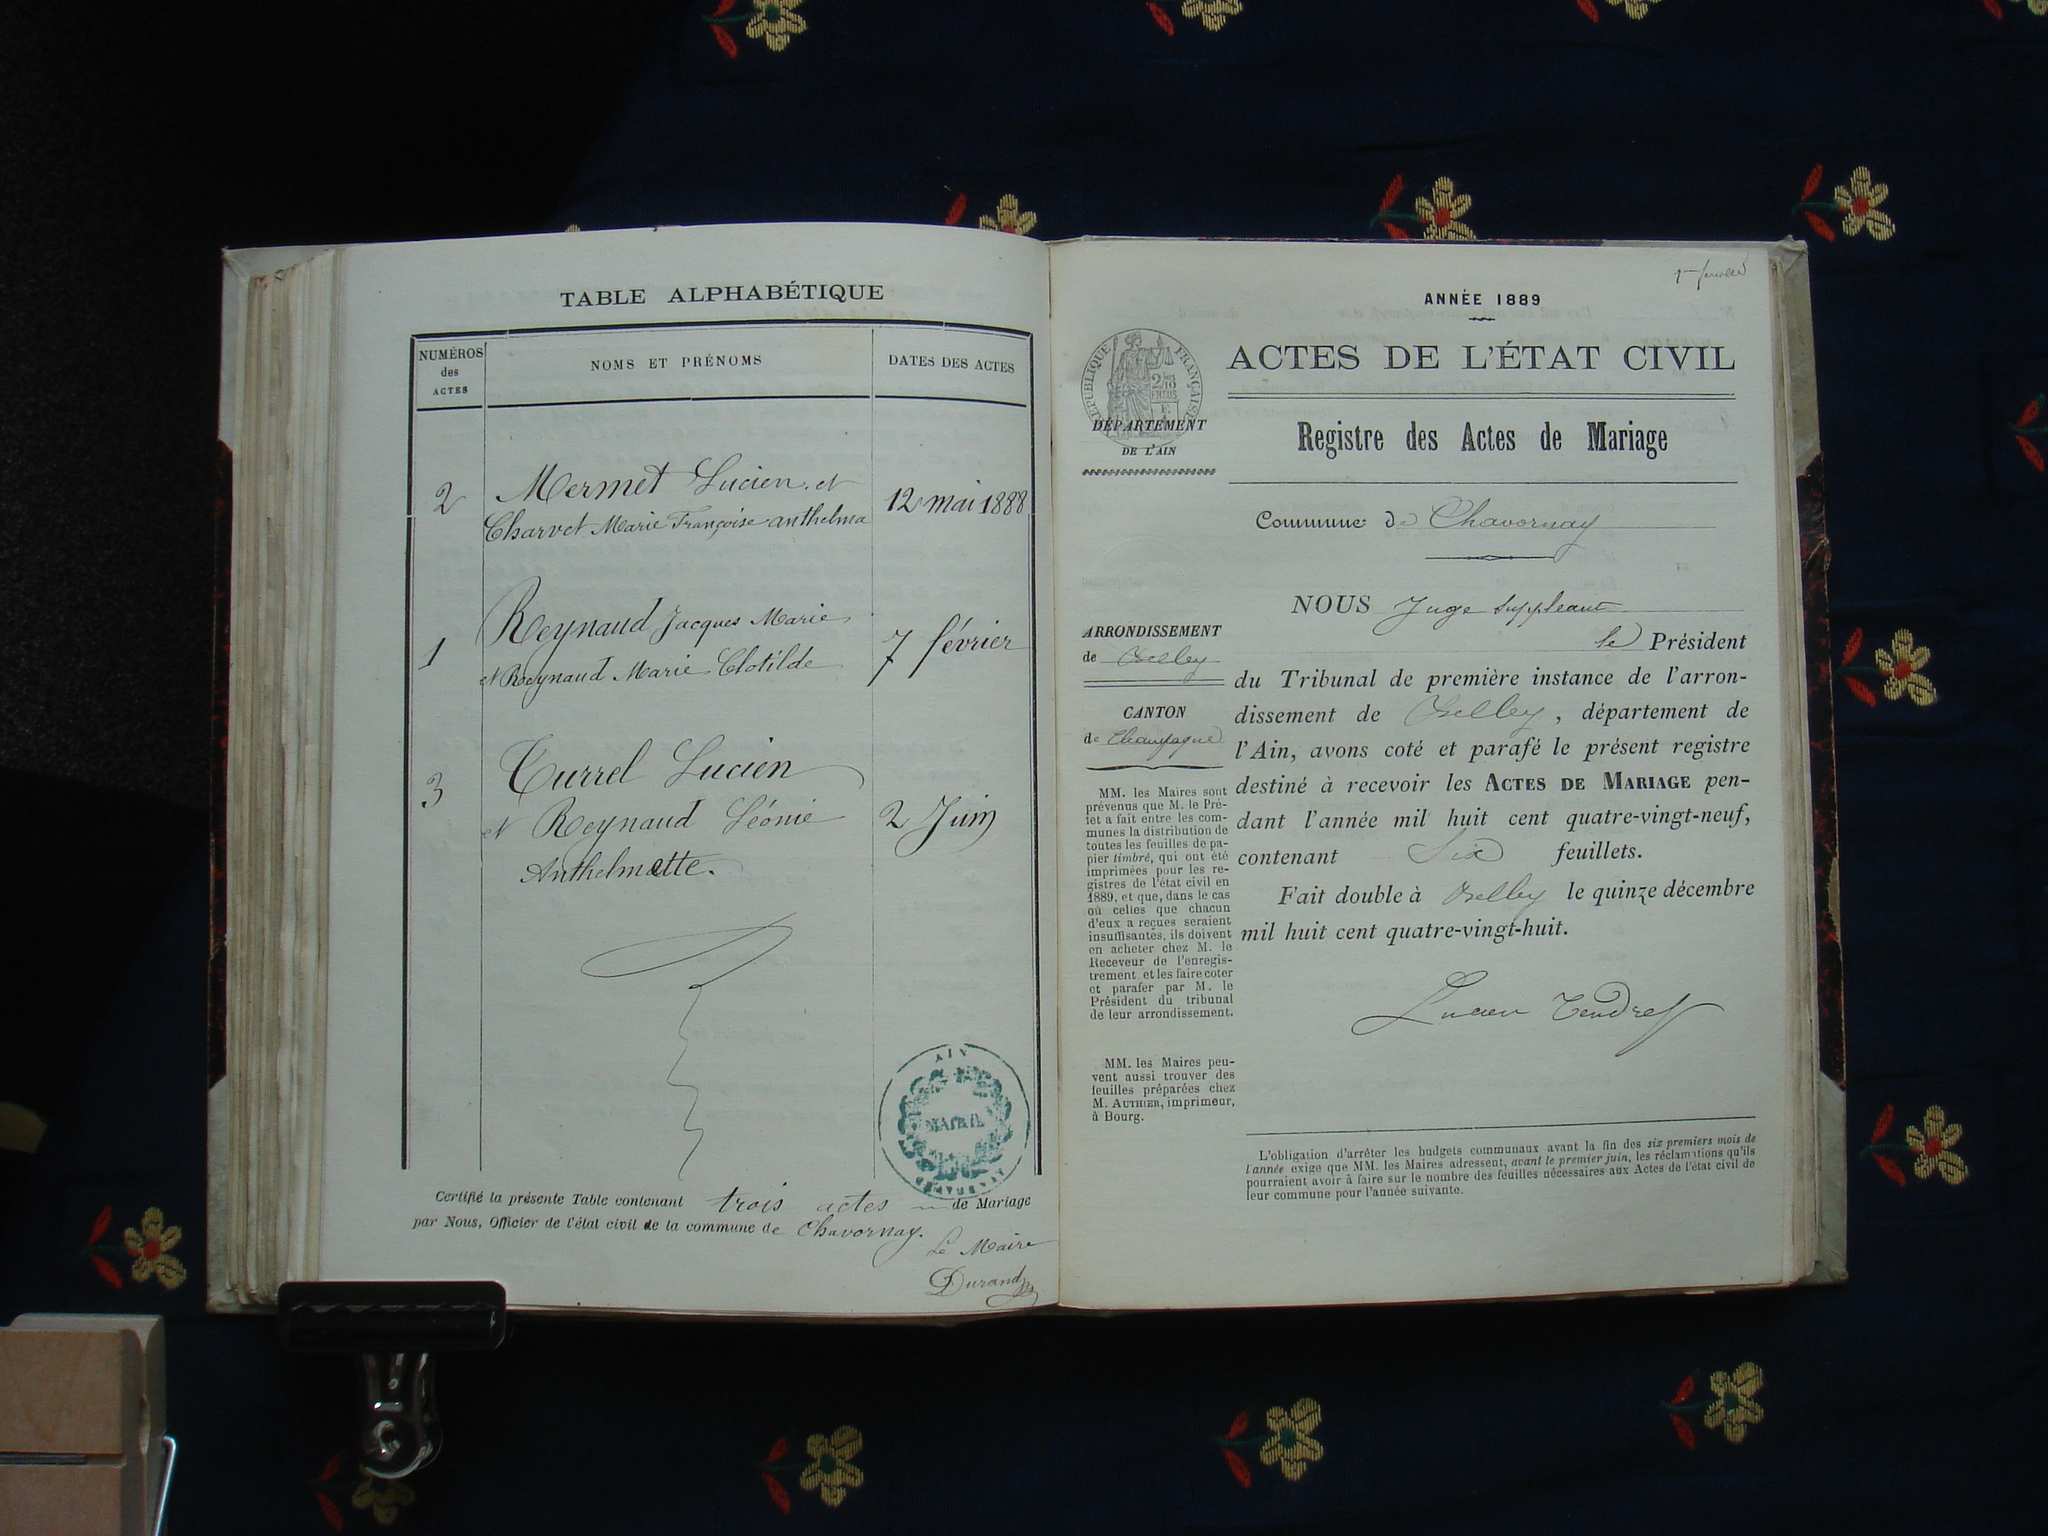 TABLE ALPHABÉTIQUE
NUMÉROS
des
ACTES
NOMS ET PRÉNOMS
DATES DES ACTES
2
Mermet Lucien et
12 mai 1888
Charvet Marie Françoise anthelma
1
Reynaud Jacques Marie
7 février
et Reynaud Marie Clotilde
3
Turrel Lucien
et Reynaud Léonie
2 Juin
Anthelmette.
AIN
MAIRIE
Certifié la présente Table contenant trois actes de Mariage
par Nous, Officier de l'état civil de la commune de Chavornay.
Le Maire
Durand
ANNÉE 1889
RÉPUBLIQUE FRANÇAISE
ACTES DE L'ÉTAT CIVIL
DÉPARTEMENT
DE L'AIN
Registre des Actes de Mariage
Commune de Chavornay
ARRONDISSEMENT
de Belley
CANTON
de Champagne
MM. les Maires sont
prévenus que M. le Pré-
fet a fait entre les com-
munes la distribution de
toutes les feuilles de pa-
pier timbré, qui ont été
imprimées pour les re-
gistres de l'état civil en
1889, et que, dans le cas
où celles que chacun
d'eux a reçues seraient
insuffisantes, ils doivent
en acheter chez M. le
Receveur de l'enregis-
trement et les faire coter
et parafer par M. le
Président du tribunal
de leur arrondissement.
MM. les Maires peu-
vent aussi trouver des
feuilles préparées chez
M. AUTHIER, imprimeur,
à Bourg.
NOUS Juge Suppléant
le Président
du Tribunal de première instance de l'arron-
dissement de Belley, département de
l'Ain, avons coté et parafé le présent registre
destiné à recevoir les ACTES DE MARIAGE pen-
dant l'année mil huit cent quatre-vingt-neuf,
contenant Six feuillets.
Fait double à Belley le quinze décembre
mil huit cent quatre-vingt-huit.
Lucien Tendret
L'obligation d'arrêter les budgets communaux avant la fin des six premiers mois de
l'année exige que MM. les Maires adressent, avant le premier juin, les réclamations qu'ils
pourraient avoir à faire sur le nombre des feuilles nécessaires aux Actes de l'état civil de
leur commune pour l'année suivante.